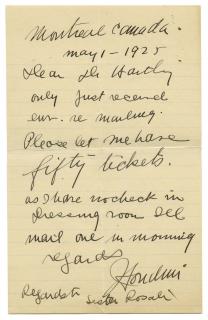 Montreal Canada.
May 1 - 1925
Dear Dr Hartly
only just received
env. re mailing.
Please let me have
fifty tickets.
as I have no check in
Dressing room Ill
mail one in morning
regards
Houdini
Regards to
Sister Rosalie